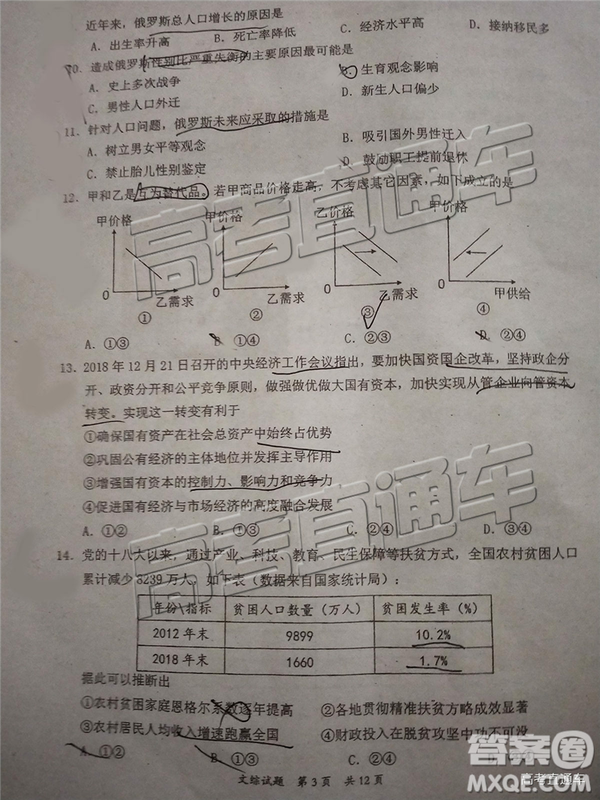 近年来,俄罗斯总人口增长的原因是
A. 出生率升高 B. 死亡率降低 C. 经济水平高 D. 接纳移民多
10. 造成俄罗斯性别比严重失衡的主要原因最可能是
A. 史上多次战争 B. 生育观念影响
C. 男性人口外迁 D. 新生人口偏少
11. 针对人口问题,俄罗斯未来应采取的措施是
A. 树立男女平等观念 B. 吸引国外男性迁入
C. 禁止胎儿性别鉴定 D. 鼓励职工提前退休
12. 甲和乙是互为替代品。若甲商品价格走高,不考虑其它因素,如下成立的是
甲价格 甲价格 乙价格 甲价格
0 0 0 0
乙需求 乙需求 乙需求 甲供给
① ② ③ ④
A. ①③ B. ①④ C. ②③ D. ②④
13. 2018年12月21日召开的中央经济工作会议指出,要加快国资国企改革,坚持政企分
开、政资分开和公平竞争原则,做强做优做大国有资本,加快实现从管企业向管资本
转变。实现这一转变有利于
①确保国有资产在社会总资产中始终占优势
②巩固公有经济的主体地位并发挥主导作用
③增强国有资本的控制力、影响力和竞争力
④促进国有经济与市场经济的高度融合发展
A. ①② B. ①③ C. ②④ D. ③④
14. 党的十八大以来,通过产业、科技、教育、民生保障等扶贫方式,全国农村贫困人口
累计减少8239万人。如下表(数据来自国家统计局):
年份\指标 贫困人口数量(万人) 贫困发生率(%)
2012年末 9899 10.2%
2018年末 1660 1.7%
据此可以推断出
①农村贫困家庭恩格尔系数逐年提高 ②各地贯彻精准扶贫方略成效显著
③农村居民人均收入增速跑赢全国 ④财政投入在脱贫攻坚中功不可没
A. ①② B. ①③ C. ②④ D. ③④
文综试题 第3页 共12页
高考直通车
高考直通车
答案圈
MXQE.COM
高考直通车